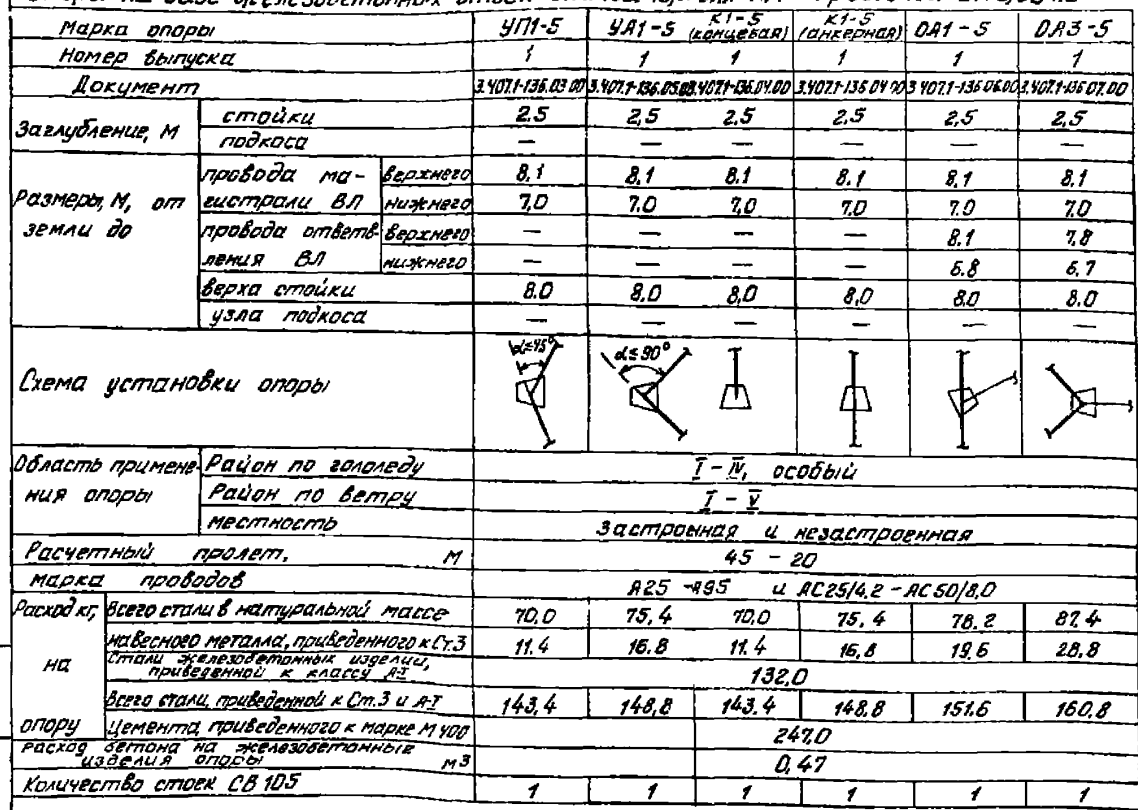 Марка опоры УП1-5 УА1-5 К1-5 (концевая) К1-5 (анкерная) ОА1-5 ОА3-5
Номер выпуска 1 1 1 1 1 1
Документ 3.407.1-136.03.00 3.407.1-136.05.00 3.407.1-136.04.00 3.407.1-136.04.00 3.407.1-136.06.00 3.407.1-136.07.00
Заглубление, м стойки 2.5 2,5 2,5 2,5 2,5 2,5
подкоса — — — — — —
Размеры, м, от земли до провода магистрали ВЛ верхнего 8.1 8.1 8.1 8.1 8.1 8.1
нижнего 7.0 7.0 7,0 7.0 7.0 7.0
провода ответвления ВЛ верхнего — — — — 8.1 7.8
нижнего — — — — 6.8 6.7
верха стойки 8.0 8.0 8,0 8,0 8.0 8.0
узла подкоса — — — — — —
Схема установки опоры α≤45° α≤90°
Область применения опоры Район по гололеду I - IV, особый
Район по ветру I - V
местность Застроенная и незастроенная
Расчетный пролет, м 45 - 20
марка проводов А25 - А95 и АС25/4,2 - АС50/8,0
Расход кг, на опору Всего стали в натуральной массе 70,0 75,4 70,0 75,4 78.2 87.4
навесного металла, приведенного к Ст.3 11.4 16.8 11.4 16,8 19,6 28,8
Стали железобетонных изделий, приведенной к классу А-I 132,0
Всего стали, приведенной к Ст.3 и А-I 143,4 148,8 143.4 148.8 151.6 160.8
Цемента, приведенного к марке М400 247,0
расход бетона на железобетонные изделия опоры м3 0,47
Количество стоек СВ 105 1 1 1 1 1 1